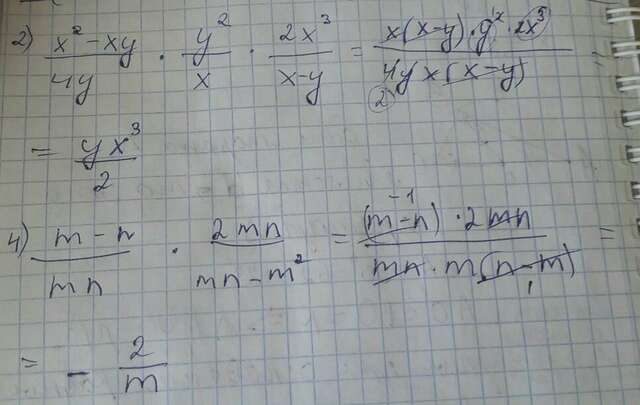 2) (x² - xy)/(4y) · y²/x · 2x³/(x-y) = (x(x-y) · y² · 2x³)/(4y x(x-y)) =
2
= yx³/2
4) (m - n)/(mn) · 2mn/(mn - m²) = ((m-n) · 2mn)/(mn · m(n-m)) =
-1
1
= - 2/m